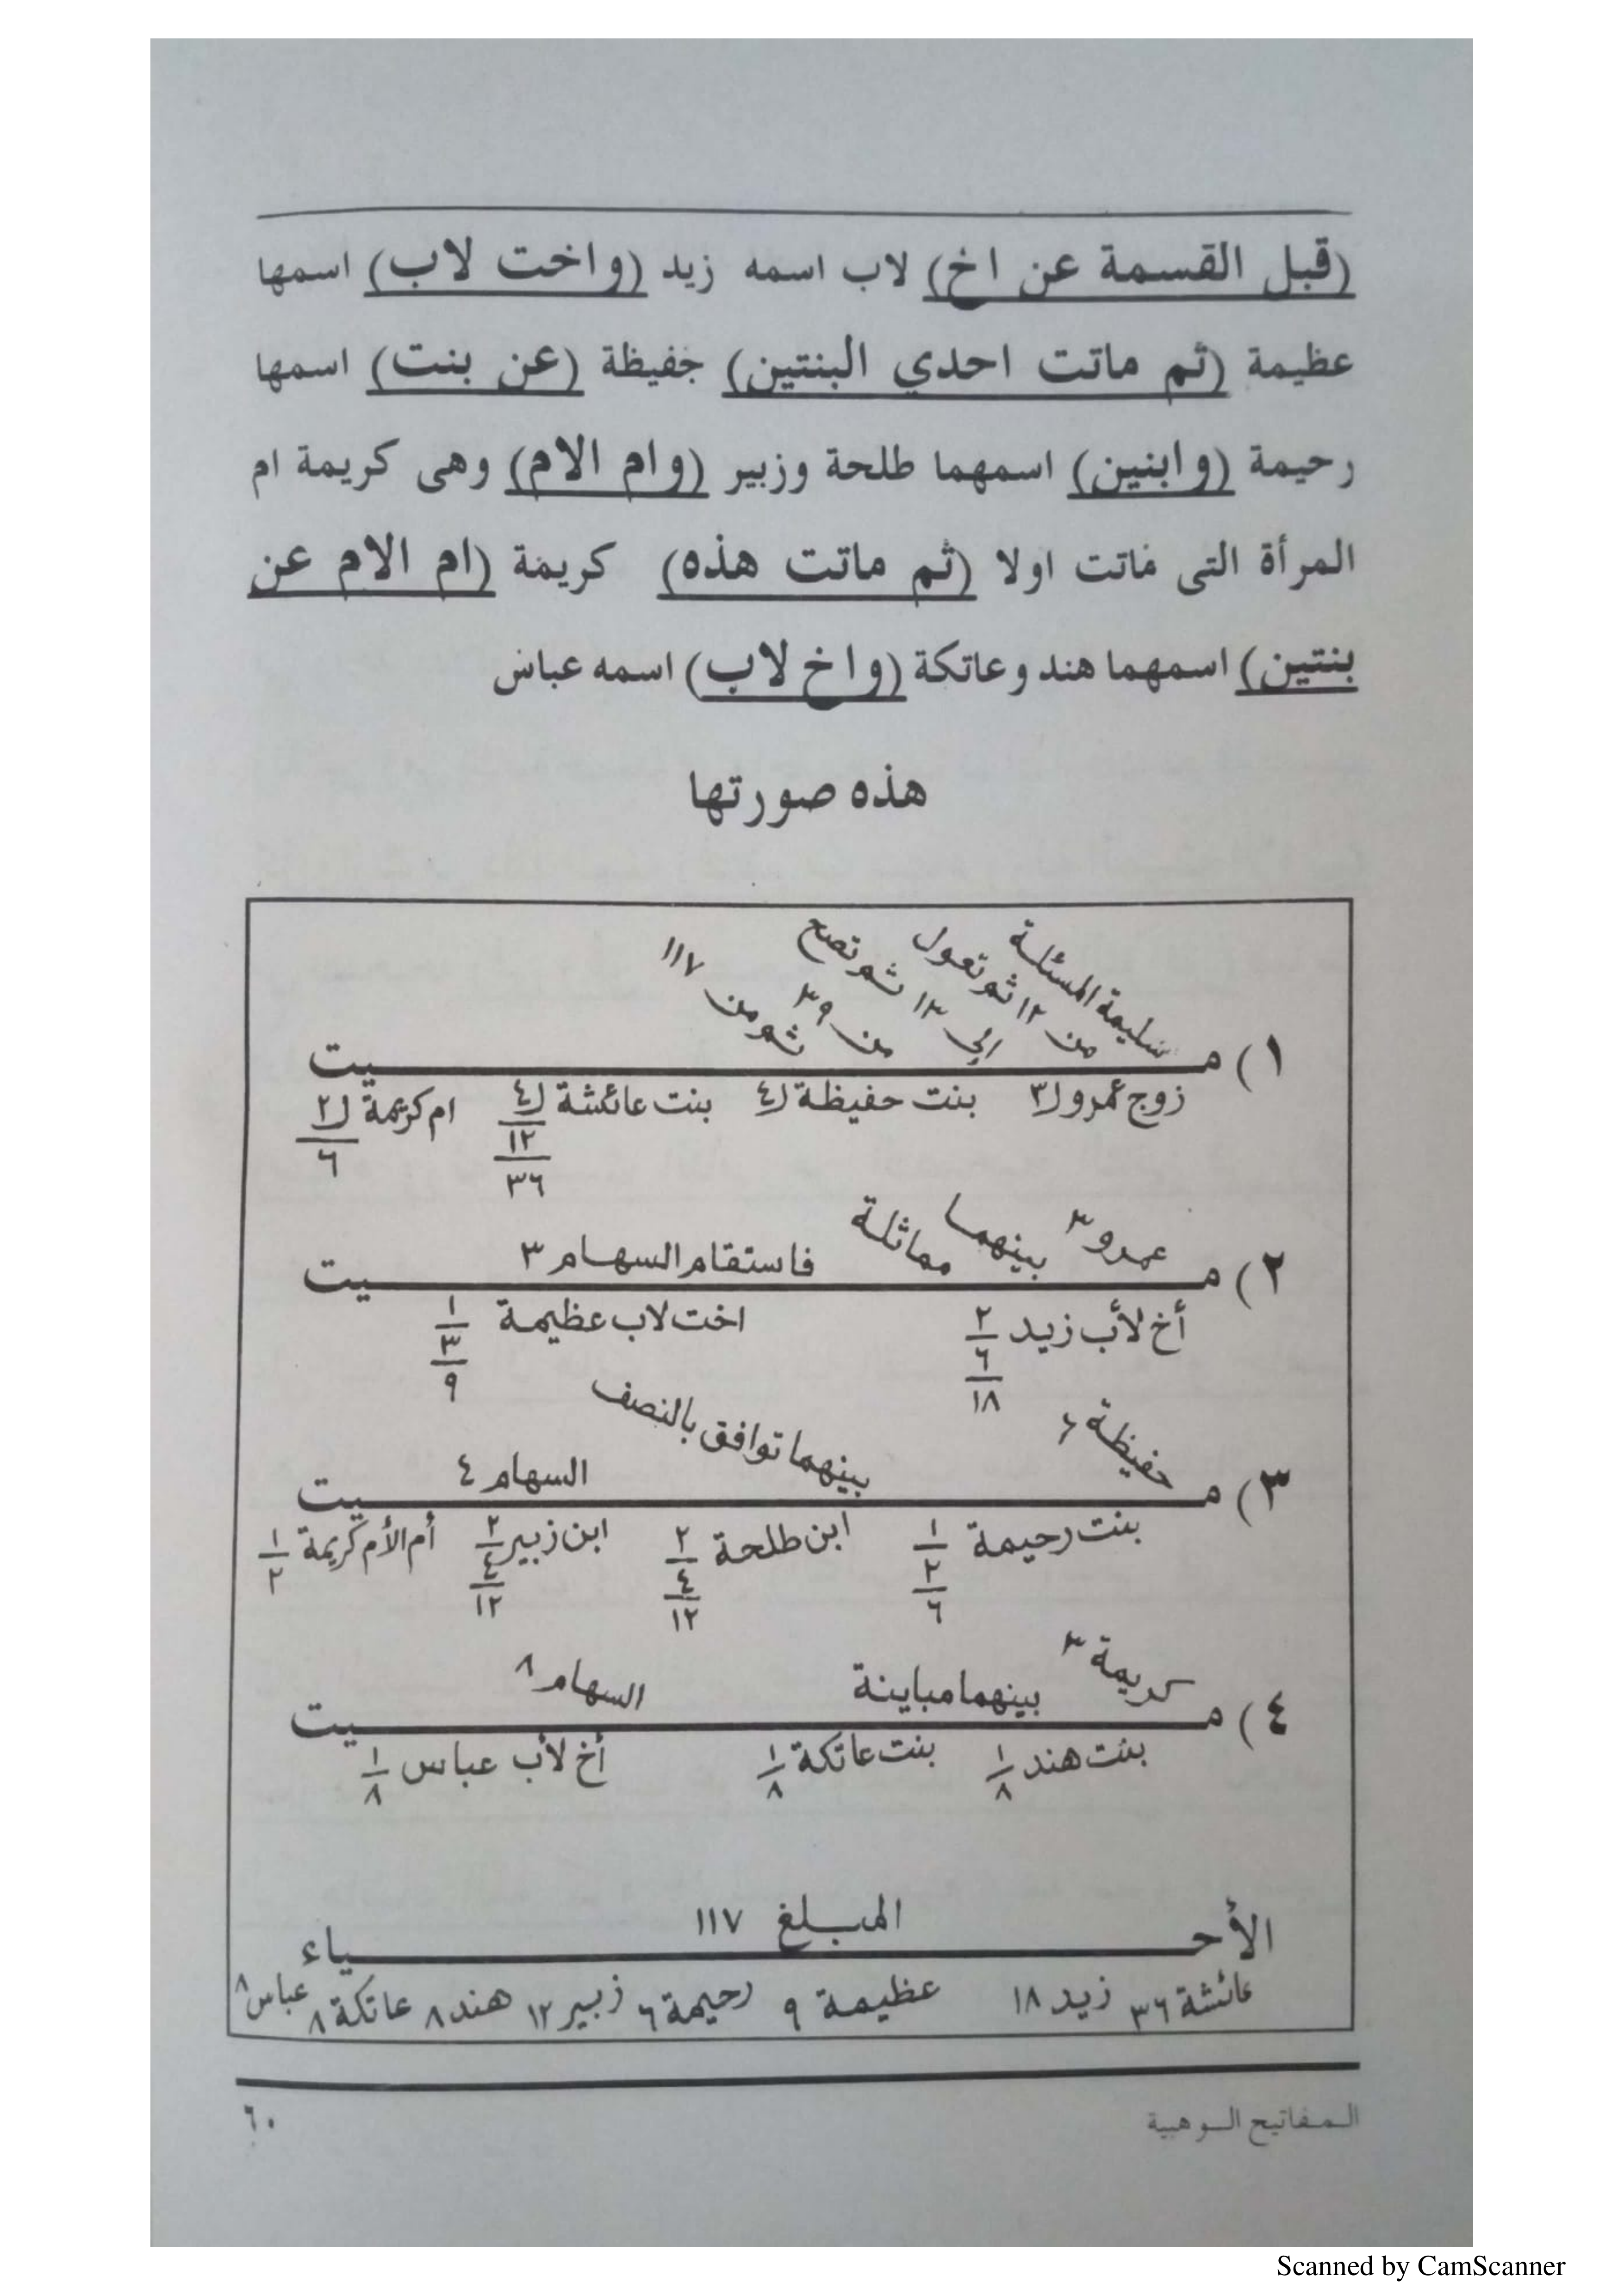 (قبل القسمة عن اخ) لاب اسمه زيد (واخت لاب) اسمها
عظيمة (ثم ماتت احدي البنتين) حفيظة (عن بنت) اسمها
رحيمة (وابنين) اسمهما طلحة وزبير (وام الام) وهى كريمة ام
المرأة التى ماتت اولا (ثم ماتت هذه) كريمة (ام الام عن
بنتين) اسمهما هند وعاتكة (واخ لاب) اسمه عباس
هذه صورتها
سليمة المسئلة
من ١٢ ثم تعول
إلى ١٣ ثم تصح
من ٣٩
ثم من ١١٧
١) مـــيت
زوج عمرو ٣ بنت حفيظة ٤ بنت عائشة ٤ ١٢ ٣٦ ام كريمة ٢ ٦
عمرو ٣ بينهما مماثلة فاستقام السهام ٣
٢) مـــيت
أخ لأب زيد ٢ ٦ ١٨ اخت لاب عظيمة ١ ٣ ٩
حفيظة ٤ بينهما توافق بالنصف السهام ٤
٣) مـــيت
بنت رحيمة ١ ٢ ٦ ابن طلحة ٢ ٤ ١٢ ابن زبير ٢ ٤ ١٢ أم الأم كريمة ١ ٢
كريمة ٣ بينهما مباينة السهام ٨
٤) مـــيت
بنت هند ١ ٨ بنت عاتكة ١ ٨ أخ لأب عباس ١ ٨
المبلغ ١١٧
الأحـــياء
عائشة ٣٦ زيد ١٨ عظيمة ٩ رحيمة ٦ زبير ١٢ هند ٨ عاتكة ٨ عباس ٨
المفاتيح الوهبية ٦٠
Scanned by CamScanner